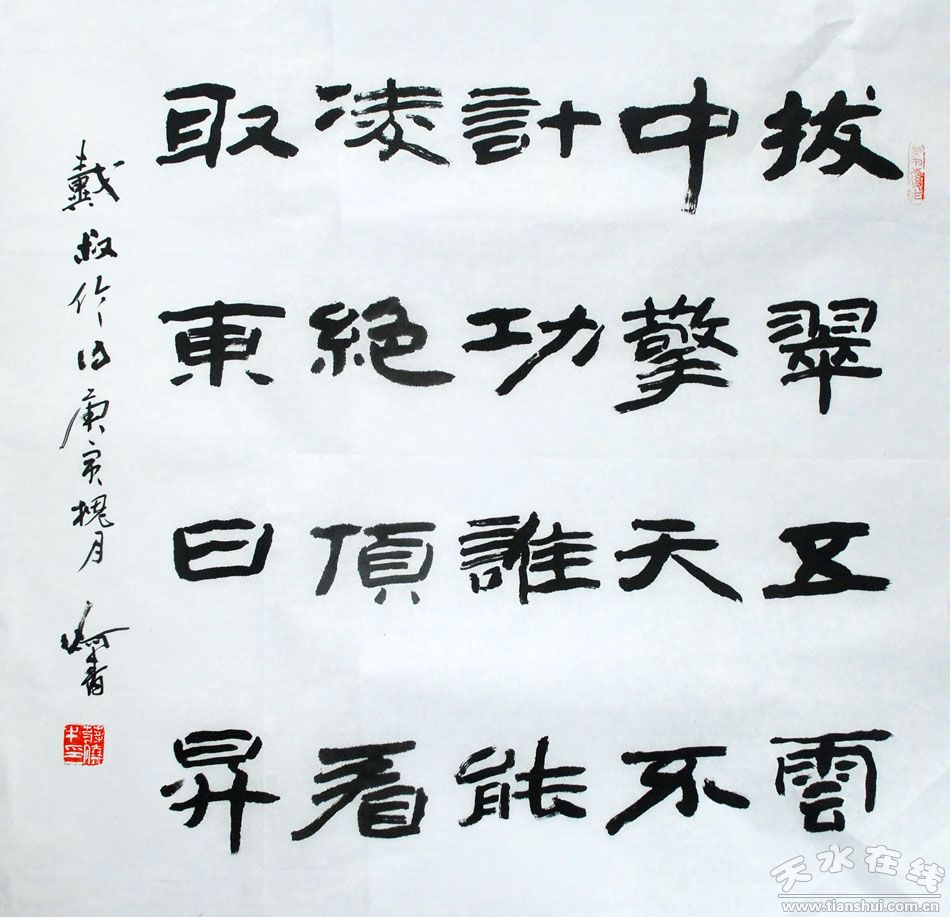 拔翠五雲
中擎天不
計功誰能
凌絶頂看
取東日昇
戴叔伦诗庚寅槐月
天水在线
www.tianshui.com.cn